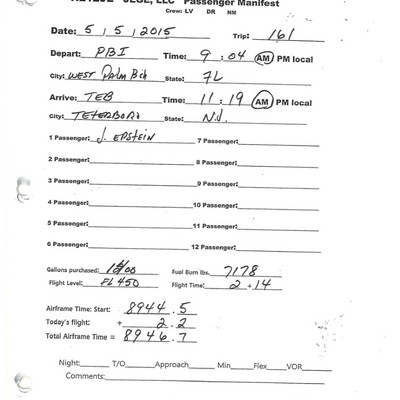 JEGE, LLC Passenger Manifest
Crew: LV DR NM
Date: 5 / 5 / 2015 Trip: 161
Depart: PBI Time: 9 : 04 AM PM local
City: WEST Palm Bch State: FL
Arrive: TEB Time: 11 : 19 AM PM local
City: TETERBORO State: N.J.
1 Passenger: J. EPSTEIN 7 Passenger:
2 Passenger: 8 Passenger:
3 Passenger: 9 Passenger:
4 Passenger: 10 Passenger:
5 Passenger: 11 Passenger:
6 Passenger: 12 Passenger:
Gallons purchased: Fuel Burn lbs. 7178
Flight Level: FL450 Flight Time: 2 + 14
Airframe Time: Start: 8944.5
Today's flight: + 2.2
Total Airframe Time = 8946.7
Night: T/O Approach Min Flex VOR
Comments: